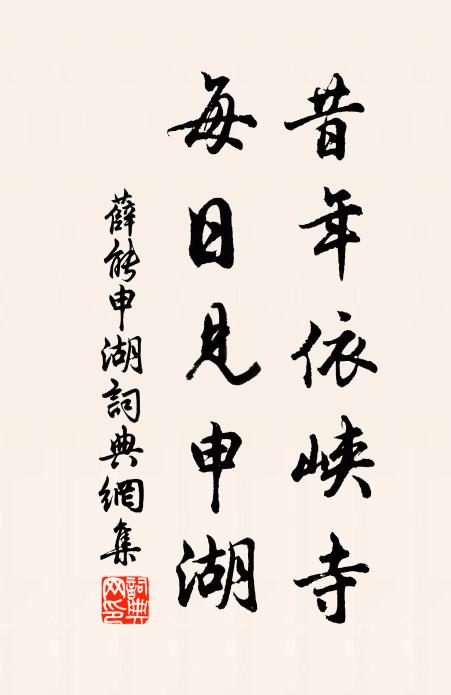 昔年依峽寺
每日見申湖
薛能申湖詞典網集
詞典网印